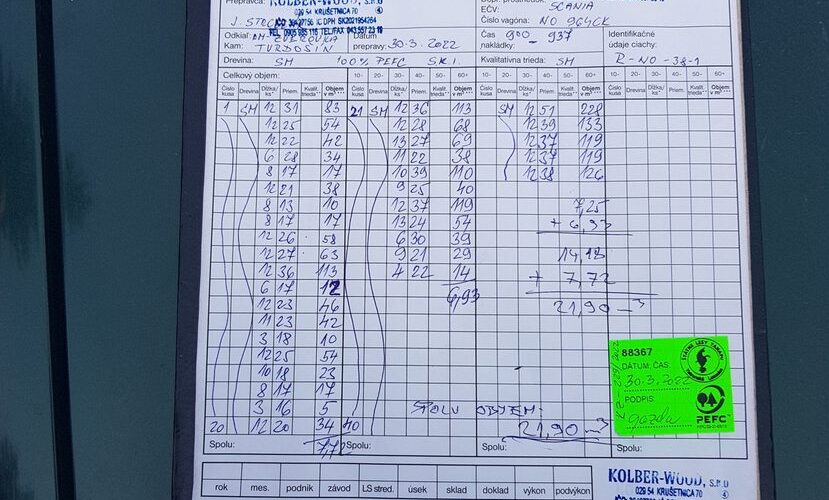 Prepravca: KOLBER-WOOD, s.r.o
029 54 KRUŠETNICA 70 ④
IČO 36427756 IČ DPH SK2021954264
TEL. 0905 885 116 TEL/FAX 043 557 23 19
SCANIA
EČV:
Číslo vozňa: NO 964CK
Odkiaľ:
Kam: TVRDOŠÍN
Dátum prepravy: 30.3.2022
Čas nakládky: 900 - 937
Identifikačné údaje ciachy: R-NO-38-1
Drevina: SM 100% PEFC SK.I.
Kvalitatívna trieda: SM
Celkový objem: 10- 20- 30- 40- 50- 60+ 10- 20- 30- 40- 50- 60+ 10- 20- 30- 40- 50- 60+
Číslo kusa Drevina Dĺžka/ks Priem. Kvalit. trieda Objem v m³ Číslo kusa Drevina Dĺžka/ks Priem. Kvalit. trieda Objem v m³ Číslo kusa Drevina Dĺžka/ks Priem. Kvalit. trieda Objem v m³
1 SM 12 31 83 21 SM 12 36 113 SM 12 51 228
12 25 54 12 28 68 12 39 133
12 22 42 13 27 69 12 37 119
6 28 34 11 22 38 12 37 119
8 17 17 10 39 110 12 38 126
12 21 38 9 25 40
8 13 10 12 37 119 7,25
8 17 17 13 24 54 + 6,93
12 26 58 6 30 39
12 27 63 9 21 29 14,18
12 36 113 4 22 14 + 7,72
6 17 12 6,93 21,90 m³
12 23 46
11 23 42
3 18 10
12 25 54
10 18 23
8 17 17
3 16 5 SPOLU OBJEM:
20 12 20 34 40 21,90 m³
Spolu: 7,72 Spolu: Spolu:
88367
DÁTUM, ČAS:
30.3.2022
PODPIS:
PEFC
rok mes. podnik závod LS stred. úsek sklad doklad výkon podvýkon
KOLBER-WOOD, s.r.o
029 54 KRUŠETNICA 70 ④